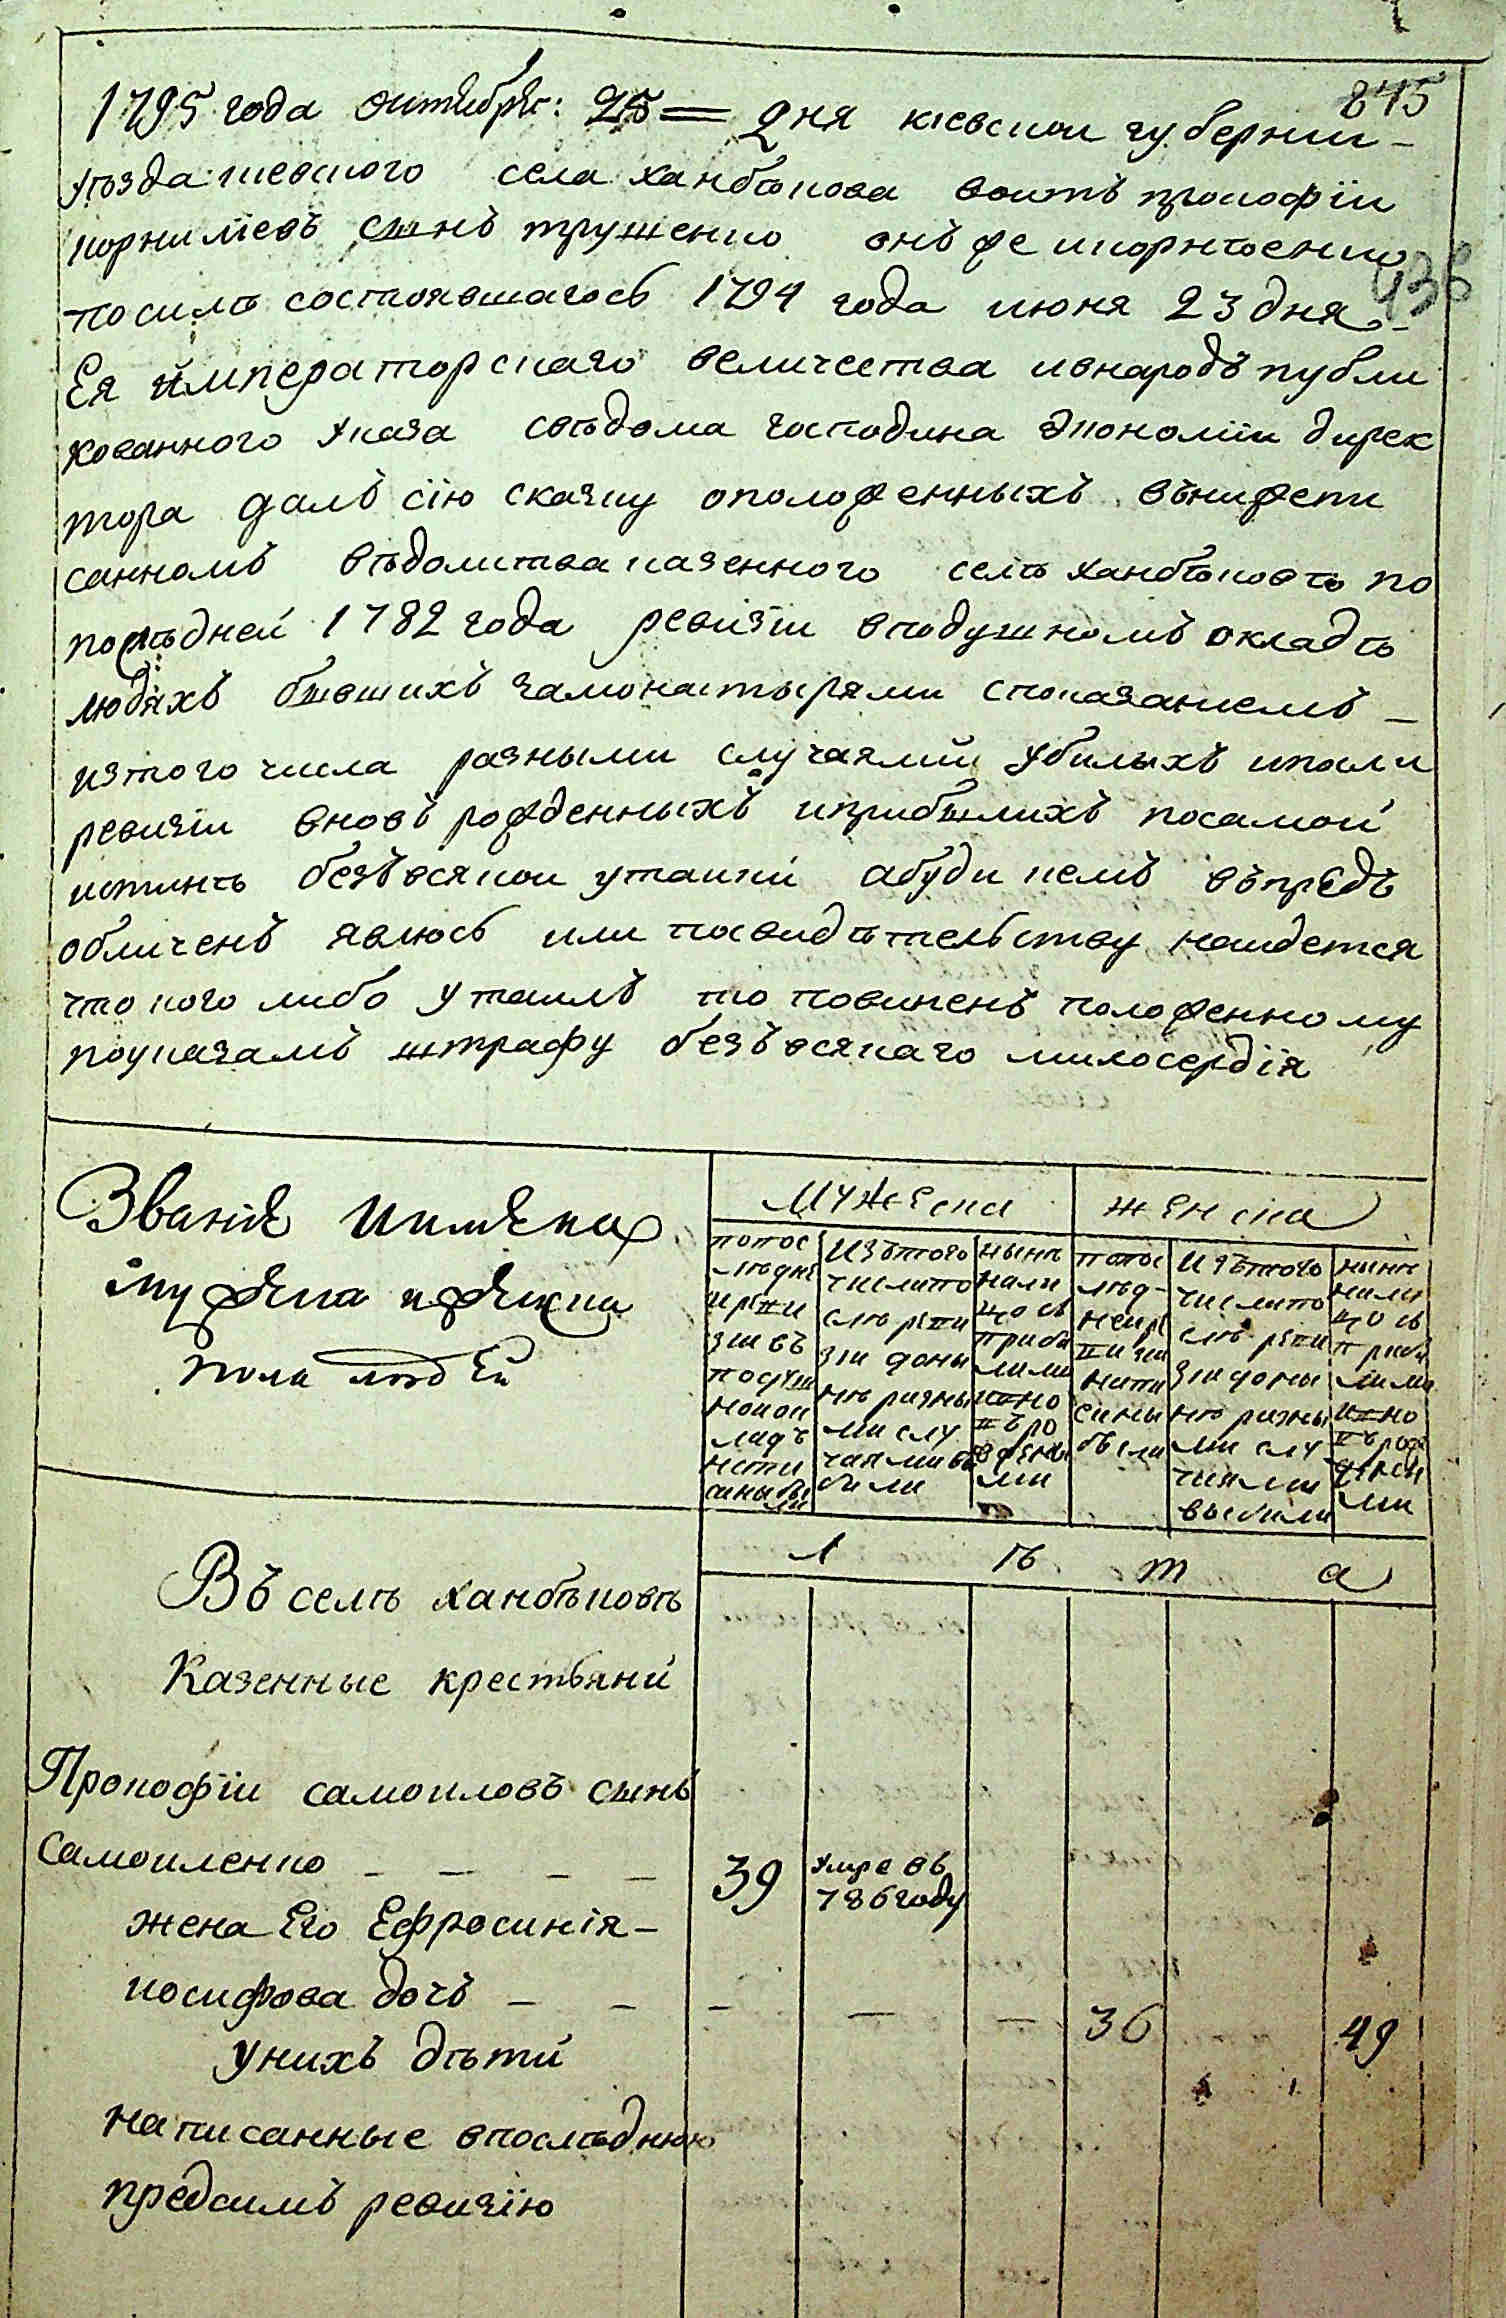 845
1795 года октября: 25 = дня киевскои губернии
уезда киевского села ханбъкова воитъ прокофіи
корниліевъ сынъ трушенко онъ же и корнъенко
по силъ состоявшагось 1794 года июня 23 дня
436
Ея императорскаго величества и внародъ публи
кованного указа съ въдома господина экономіи дирек
тора далъ сію скаску о положенныхъ в нижепи
санномъ въдомства казенного селъ ханбъковъ по
послъдней 1782 года ревизіи в подушномъ окладъ
людяхъ бывшихъ за монастырями с показаниемъ
из того числа разными случаями убилыхъ и посли
ревизіи вновъ рожденныхъ и прибылихъ по самой
истинъ безъ всякои утаики а буди кемъ въпредъ
обличенъ явлюсь или по свидътельству наидется
что кого либо утаилъ то повиненъ положенному
по указамъ штрафу безъ всякаго милосердія
Званія и имяна
мужеска и женска
пола людей
мужеска
женска
По пос
лъдне
и реви
зіи въ
подуш
номъ ок
ладъ
написаны были
Изъ того
числа по
слъ реви
зіи до ны
нъ разны
ми слу
чаями вы
били
нынъ
на ли
цо съ
прибы
лими
и вно
въ ро
жденны
ми
По пос
лъд-
неи ре
визіи
написаны
были
Изъ того
числа по
слъ реви
зіи до ны
нъ разны
ми слу
чаями
выбили
нынъ
на ли
цо съ
прибы
лими
и вно
въ рож
денны
ми
Л ъ т а
Въ селъ ханбъковъ
Казенные крестьяни
Прокофіи самоиловъ сынъ
Самоиленко - - - - 39 умре въ
786 году
жена Его Ефросинія -
иосифова дочъ - - - - - 36 49
у нихъ дъти
написанные в послъднюю
предъ симъ ревизію